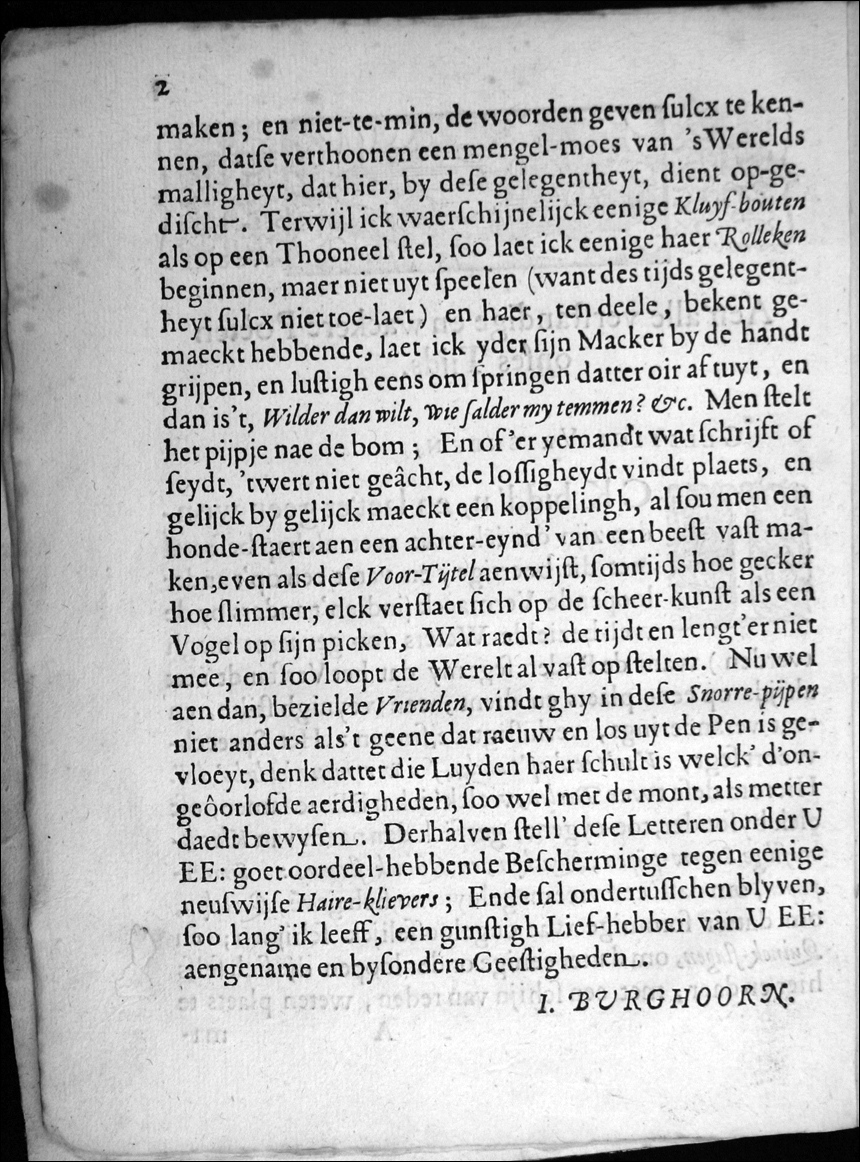 2
maken; en niet-te-min, de woorden geven ſulcx te ken-
nen, datſe verthoonen een mengel-moes van 'sWerelds
malligheyt, dat hier, by deſe gelegentheyt, dient op-ge-
diſcht. Terwijl ick waerſchijnelijck eenige Kluyf-bouten
als op een Thooneel ſtel, ſoo laet ick eenige haer Rolleken
beginnen, maer niet uyt ſpeelen (want des tijds gelegent-
heyt ſulcx niet toe-laet) en haer, ten deele, bekent ge-
maeckt hebbende, laet ick yder ſijn Macker by de handt
grijpen, en luſtigh eens om ſpringen datter oir af tuyt, en
dan is't, Wilder dan wilt, wie ſalder my temmen? &c. Men ſtelt
het pijpje nae de bom; En of 'er yemandt wat ſchrijft of
ſeydt, 'twert niet geâcht, de loſſigheydt vindt plaets, en
gelijck by gelijck maeckt een koppelingh, al ſou men een
honde-ſtaert aen een achter-eynd' van een beeſt vaſt ma-
ken, even als deſe Voor-Tijtel aenwijſt, ſomtijds hoe gecker
hoe ſlimmer, elck verſtaet ſich op de ſcheer-kunſt als een
Vogel op ſijn picken, Wat raedt? de tijdt en lengt'er niet
meê, en ſoo loopt de Werelt al vaſt op ſtelten. Nu wel
aen dan, bezielde Vrienden, vindt ghy in deſe Snorre-pijpen
niet anders als't geene dat raeuw en los uyt de Pen is ge-
vloeyt, denk dattet die Luyden haer ſchult is welck' d'on-
geôorlofde aerdigheden, ſoo wel met de mont, als metter
daedt bewyſen. Derhalven ſtell' deſe Letteren onder U
EE: goet oordeel-hebbende Beſcherminge tegen eenige
neuſwijſe Haire-klievers; Ende ſal ondertuſſchen blyven,
ſoo lang' ik leeff, een gunſtigh Lief-hebber van U EE:
aengename en byſondere Geeſtigheden.
I. BURGHOORN.